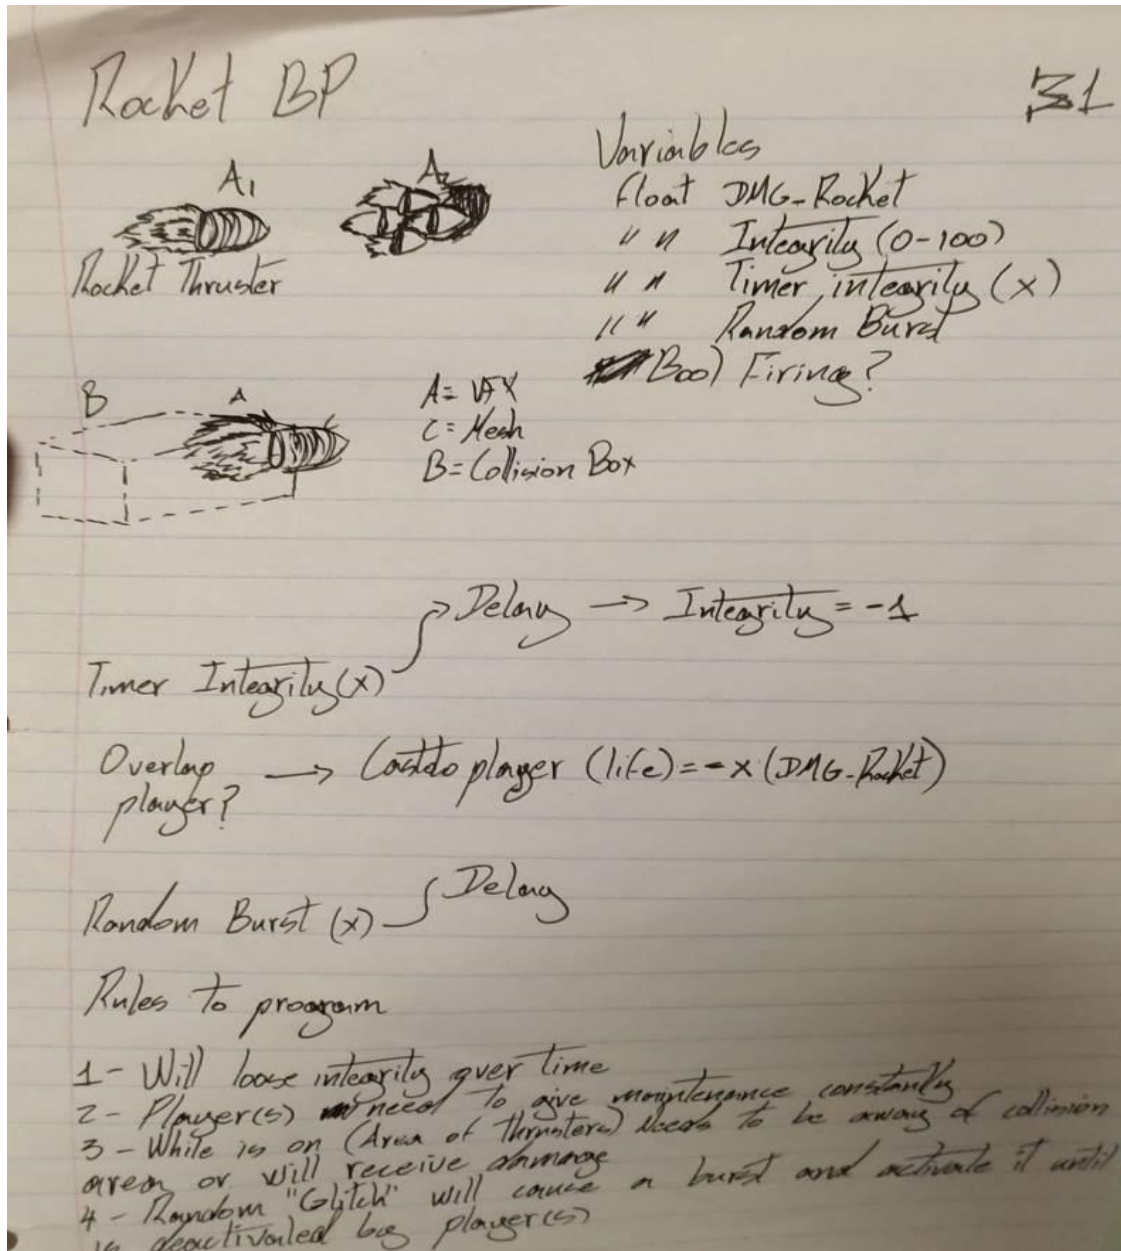 Rocket BP
31
A1
A2
Rocket Thruster
Variables
float DMG-Rocket
" " Integrity (0-100)
" " Timer integrity (x)
" " Random Burst
Bool Firing?
B
A
A= VFX
C= Mesh
B= Collision Box
Timer Integrity (x) → Delay → Integrity = -1
Overlap
player? → Castto player (life) = -x (DMG-Rocket)
Random Burst (x) Delay
Rules to program
1- Will loose integrity over time
2- Player(s) need to give maintenance constantly
3- While is on (Area of thrusters) Needs to be away of collision
area or will receive damage
4- Random "Glitch" will cause a burst and activate it until
is deactivated by player(s)